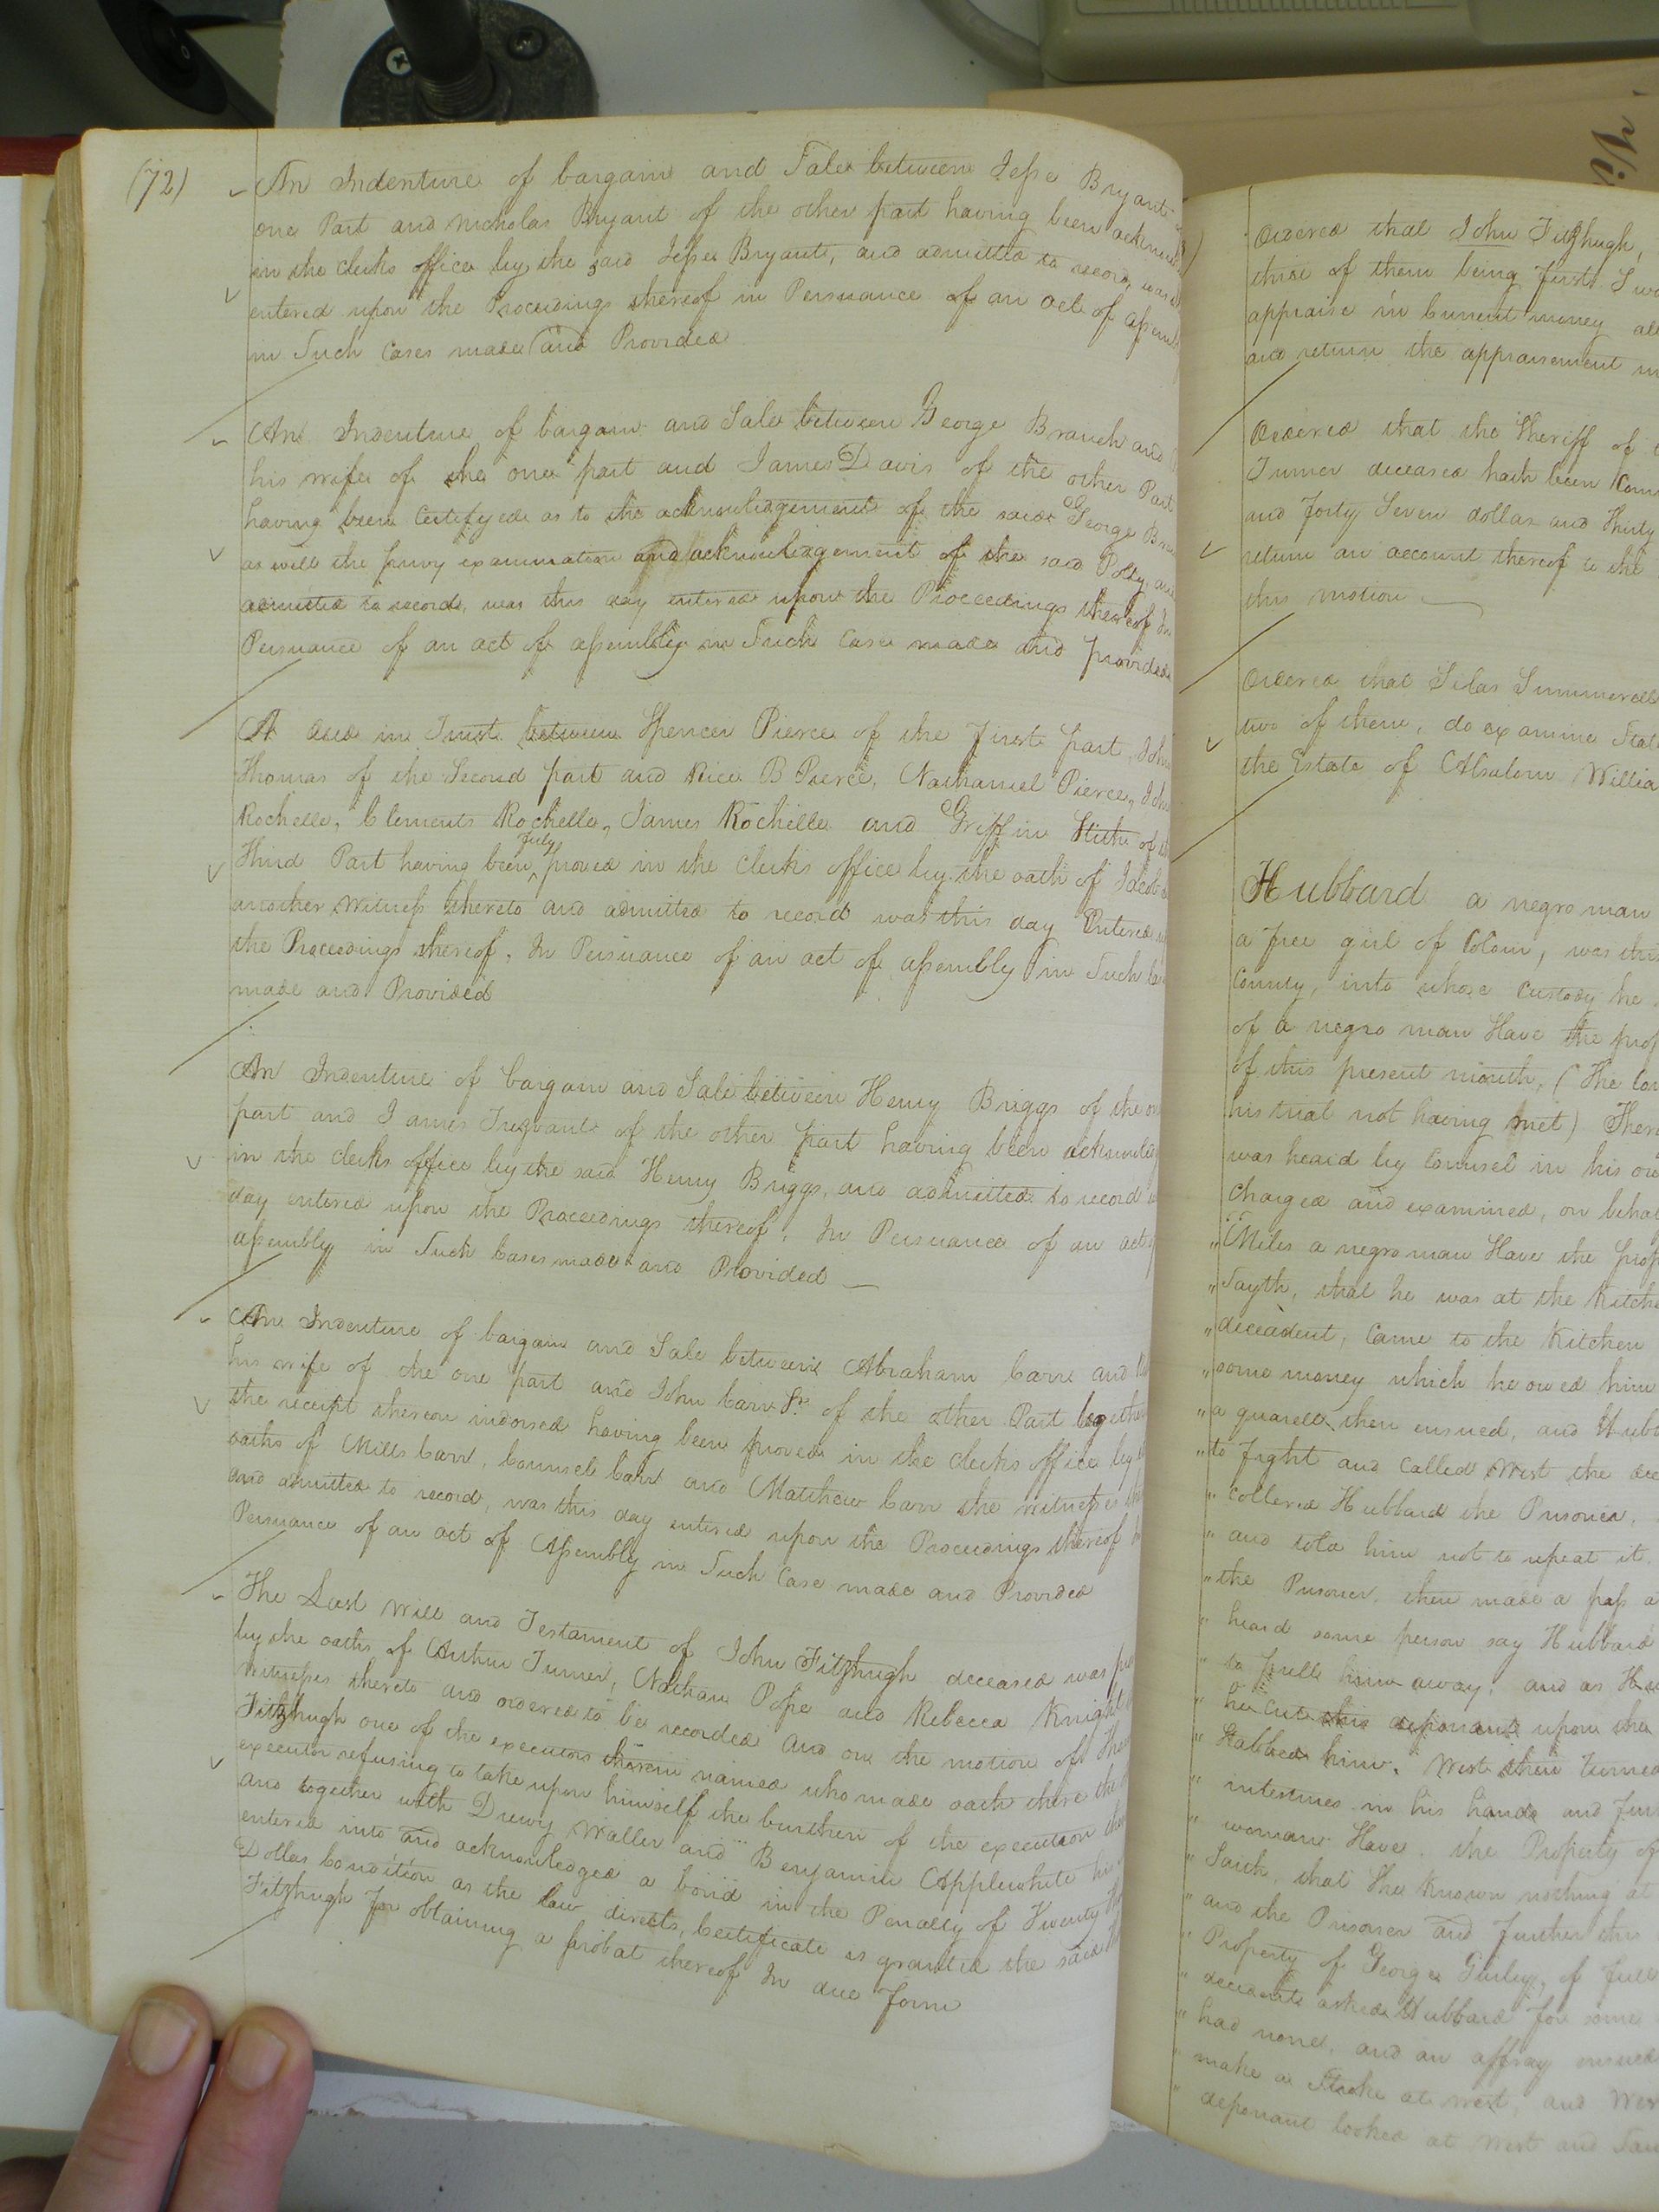 (72)
An Indenture of bargain and Sale between Jesse Bryant
one Part and Nicholas Bryant of the other part having been
in the clerks office by the said Jesse Bryant, and admitted to record, was
entered upon the Proceedings thereof in Persuance of an act of
in Such Cases made and Provided
An Indenture of bargain and Sale between George Branch and
his wife of the one part and James Davis of the other Part
having been Certifyed as to the acknowledgement of the said George
as well the privy examination and acknowledgement of the said Polly and
admitted to record, was this day entered upon the Proceedings thereof In
Persuance of an act of assembly in Such Case made and provided
A deed in Trust between Spencer Pierce of the first part, John
Thomas of the Second part and Rice B Pierce, Nathaniel Pierce, John
Rochelle, Clements Rochelle, James Rochelle and Griffin Stith of
Third Part having been fully proved in the Clerks office by the oath of
another Witness thereto and admitted to record was this day Entered
the Proceedings thereof, In Persuance of an act of assembly in Such
made and Provided
An Indenture of bargain and Sale between Henry Briggs of the
part and James Trezvant of the other part having been
in the clerks office by the said Henry Briggs, and admitted to record
day entered upon the Proceedings thereof, In Persuance of an act
assembly in Such Cases made and Provided
An Indenture of bargain and Sale between Abraham Carr and
his wife of the one part and John Carr Sr. of the other Part
the receipt thereon indorsed having been proved in the clerks office by
oaths of Mills Carr, Counsel Carr and Matthew Carr the witnesses
and admitted to record, was this day entered upon the Proceedings thereof
Persuance of an act of Assembly in Such Case made and Provided
The Last Will and Testament of John Fitzhugh deceased was
by the oaths of Arthur Turner, Nathan Pope and Rebecca Knight
witnesses thereto and ordered to be recorded And on the motion of
Fitzhugh one of the executors therein named who made oath there
executor refusing to take upon himself the burthen of the execution
and together with Drewry Waller and Benjamin Applewhite
entered into and acknowledged a bond in the Penalty of Twenty
Dollar Condition as the law directs, Certificate is granted the said
Fitzhugh for obtaining a probat thereof In due form
Ordered that John Fitzhugh,
three of them being first
appraise in Current money
and return the appraisement
Ordered that the Sheriff of
Turner deceased hath been
and Forty Seven dollar and Thirty
return an account thereof to the
this motion
Ordered that Silas Summerell
two of them, do examine
the Estate of Absalom
Hubbard a negro man
a free girl of Colour, was
County, into whose Custody he
of a negro man Slave the
of this present month, (The
his trial not having met)
was heard by Counsel in his
charged and examined, on
"Miles a negro man Slave the
"Sayth, that he was at the
"deceadent, Came to the Kitchen
"some money which he owed him
"a quarell then ensued, and
"to fight and Called West the
"Collered Hubbard the Prisoner,
"and told him not to repeat it.
"the Prisoner, then made a pass
"heard some person say Hubbard
"to pull him away, and as
"he cut this deponant upon the
"Stabbed him, West then turned
"intestines in his hands and
"woman Slave, the Property of
"Saith, that She Known nothing
"and the Prisoner and further
"Property of George Gurley, of
"decedents asked Hubbard for some
"had none, and an affray ensued
"make a Stroke at West, and
"deponant looked at West and